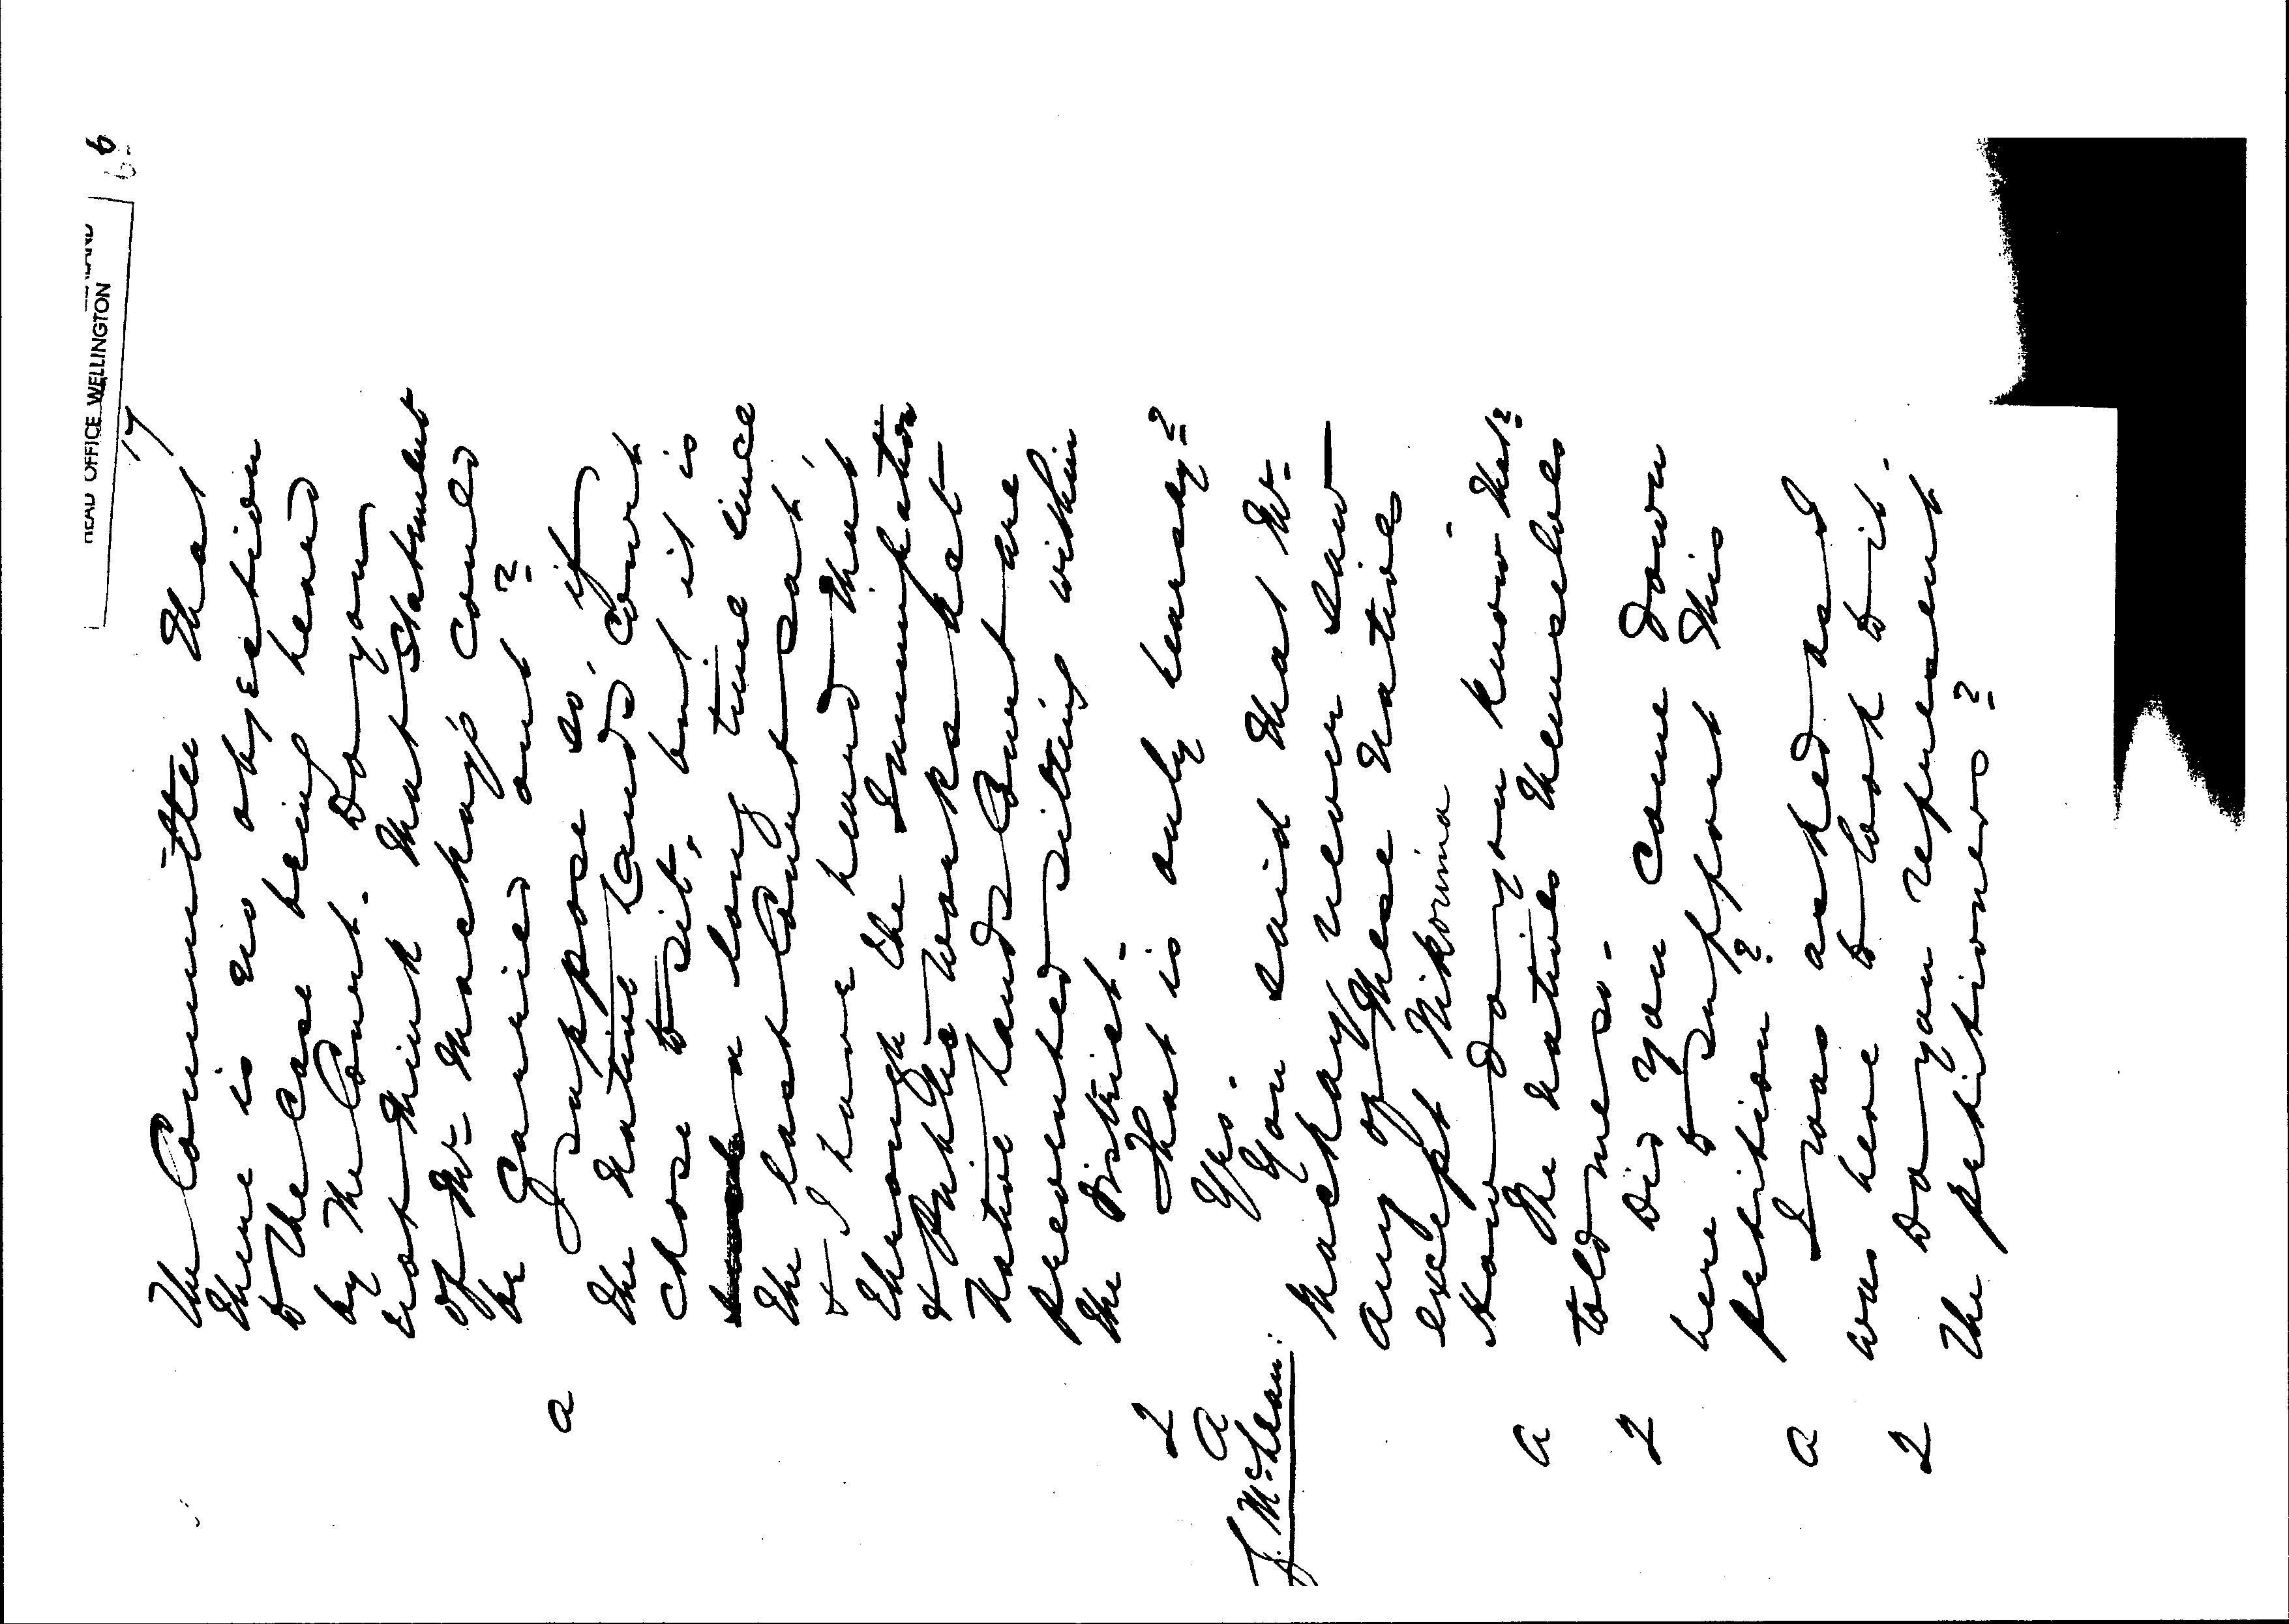 HEAD OFFICE WELLINGTON
6
17
The Committee that
there is no objection
to the Case being heard
by the Court. Do you
not think that Statement
of Mr Mackay's could
be Carried out?
a I suppose so, if
the Native Lands Court
chose to sit, but it is
a long time since
the last Court sat
& I have heard that
through the Immigration
& Public Works that
Native Lands Court are
prevented sitting within
the District.
Q That is only hearsay?
a Yes.
J. McLean: You said that Mr.
Mackay never saw
any of these Natives
except Nikorima.
How do you know that?
a The natives themselves
told me so.
Q Did you come down
here to support this
petition?
a I was asked as I
was here to look to it.
Q Do you represent
the petitioners?